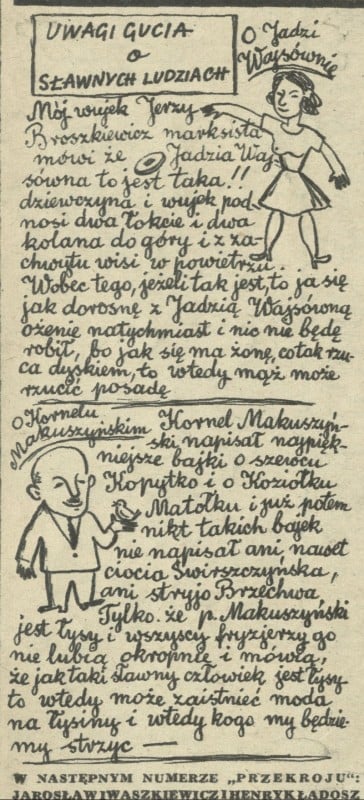 UWAGI GUCIA
o
SŁAWNYCH LUDZIACH
O Jadzi
Wajsównie
Mój wujek Jerzy
Broszkiewicz marksista
mówi że Jadzia Waj-
sówna to jest taka!!
dziewczyna i wujek pod-
nosi dwa łokcie i dwa
kolana do góry i z za-
chwytu wisi w powietrzu.
Wobec tego, jeżeli tak jest, to ja się
jak dorosnę z Jadzią Wajsówną
ożenię natychmiast i nic nie będę
robił, bo jak się ma żonę, co tak rzu-
ca dyskiem, to wtedy mąż może
rzucić posadę
O Kornelu
Makuszyńskim
Kornel Makuszyń-
ski napisał najpięk-
niejsze bajki o szewcu
Kopytko i o Koziołku
Matołku i już potem
nikt takich bajek
nie napisał ani, nawet
ciocia Świrszczyńska,
ani stryjo Brzechwa
Tylko. że p. Makuszyński
jest łysy i wszyscy fryzjerzy go
nie lubią okropnie i mówią,
że jak taki sławny człowiek jest łysy
to wtedy może zaistnieć moda
na łysiny i wtedy kogo my będzie-
my strzyc —
W NASTĘPNYM NUMERZE „PRZEKROJU”:
JAROSŁAW IWASZKIEWICZ I HENRYK ŁADOSZ